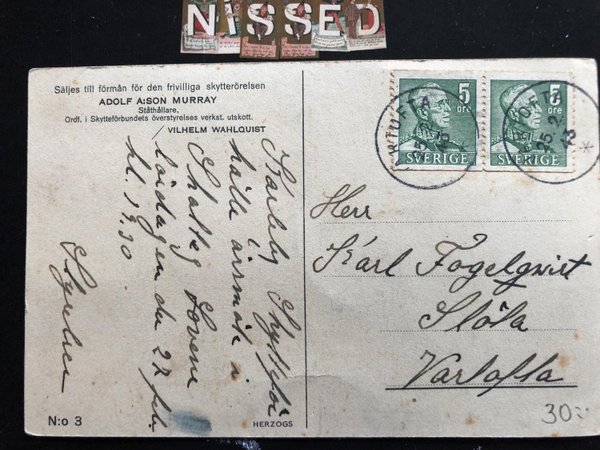 NISSED
Säljes till förmån för den frivilliga skytterörelsen
ADOLF A:SON MURRAY
Ståthållare,
Ordf. i Skytteförbundets överstyrelses verkst. utskott.
VILHELM WAHLQUIST
Karleby Skytteför
håller årsmöte i
Lovene
lördagen den 27 feb.
kl. 19.30
Styrelsen
N:o 3
HERZOGS
5
ÖRE
SVERIGE
5
ÖRE
SVERIGE
Herr
Karl Fogelqvist
Slöta
Vartofta
30:-